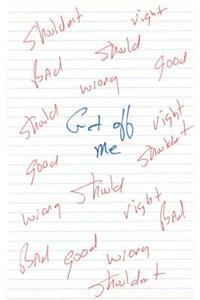 Shouldnt right
Should
BAd good
wrong
Should Get off right
me Shouldnt
good
Should
wrong right
BAd
BAd good wrong
Shouldnt